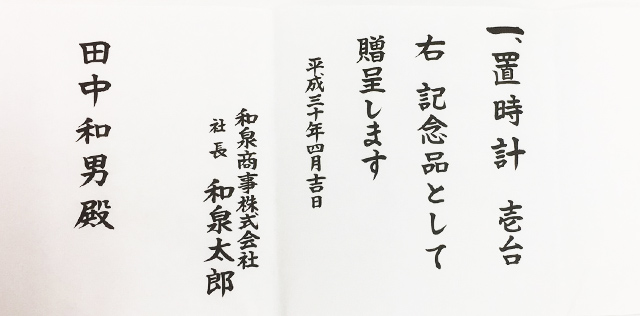 一、置時計 壱台
右 記念品として
贈呈します
平成三十年四月吉日
和泉商事株式会社
社長 和泉太郎
田中和男殿